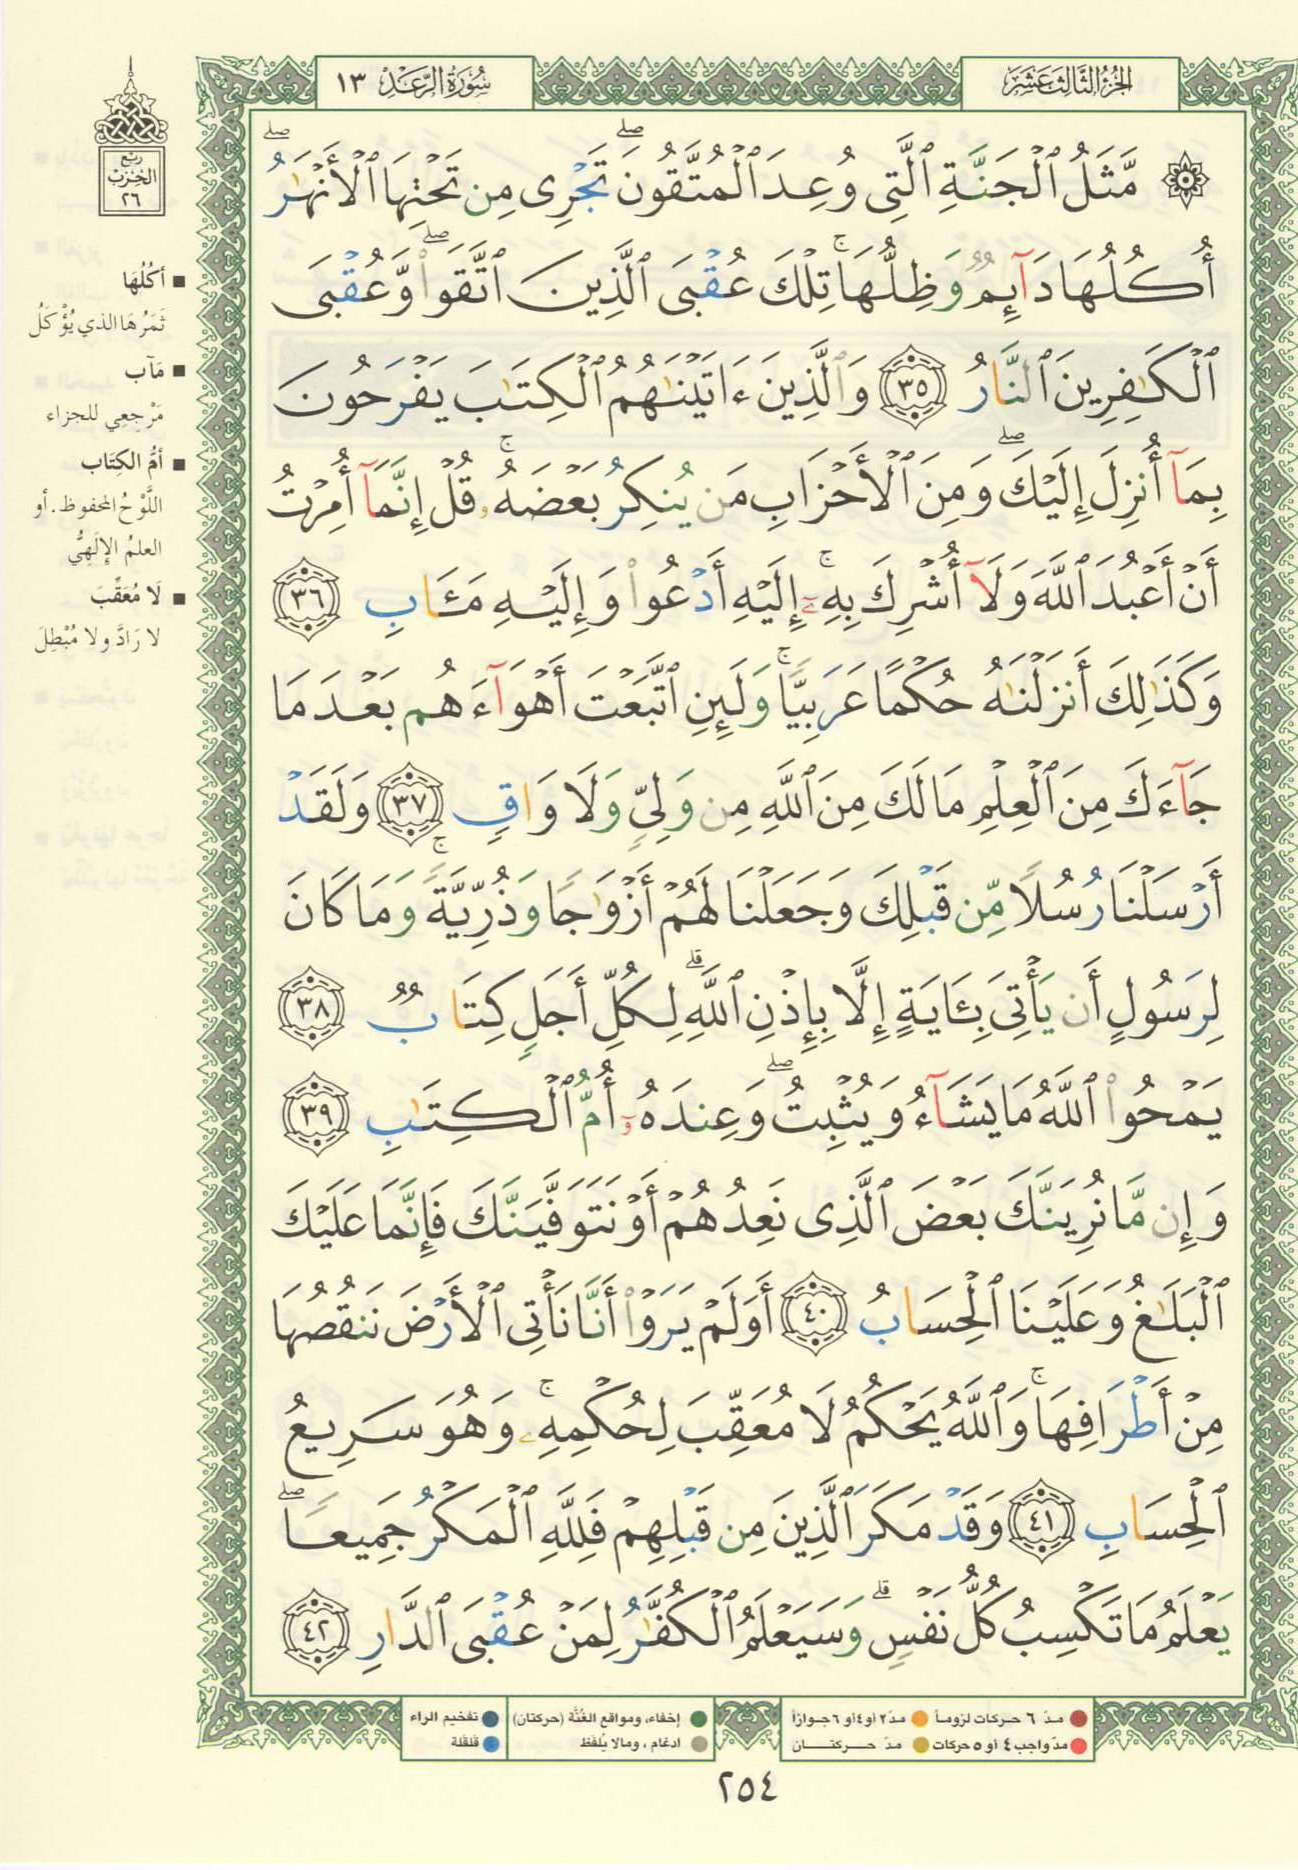 الجزء الثالث عشر
سورة الرعد ١٣
۞ مَّثَلُ ٱلْجَنَّةِ ٱلَّتِى وُعِدَ ٱلْمُتَّقُونَ ۖ تَجْرِى مِن تَحْتِهَا ٱلْأَنْهَـٰرُ ۖ
أُكُلُهَا دَآئِمٌ وَظِلُّهَا ۚ تِلْكَ عُقْبَى ٱلَّذِينَ ٱتَّقَوا۟ ۖ وَّعُقْبَى
ٱلْكَـٰفِرِينَ ٱلنَّارُ ٣٥ وَٱلَّذِينَ ءَاتَيْنَـٰهُمُ ٱلْكِتَـٰبَ يَفْرَحُونَ
بِمَآ أُنزِلَ إِلَيْكَ ۖ وَمِنَ ٱلْأَحْزَابِ مَن يُنكِرُ بَعْضَهُۥ ۚ قُلْ إِنَّمَآ أُمِرْتُ
أَنْ أَعْبُدَ ٱللَّهَ وَلَآ أُشْرِكَ بِهِۦٓ ۚ إِلَيْهِ أَدْعُوا۟ وَإِلَيْهِ مَـَٔابِ ٣٦
وَكَذَٰلِكَ أَنزَلْنَـٰهُ حُكْمًا عَرَبِيًّا ۚ وَلَئِنِ ٱتَّبَعْتَ أَهْوَآءَهُم بَعْدَ مَا
جَآءَكَ مِنَ ٱلْعِلْمِ مَا لَكَ مِنَ ٱللَّهِ مِن وَلِىٍّ وَلَا وَاقٍ ٣٧ وَلَقَدْ
أَرْسَلْنَا رُسُلًا مِّن قَبْلِكَ وَجَعَلْنَا لَهُمْ أَزْوَٰجًا وَذُرِّيَّةً ۚ وَمَا كَانَ
لِرَسُولٍ أَن يَأْتِىَ بِـَٔايَةٍ إِلَّا بِإِذْنِ ٱللَّهِ ۗ لِكُلِّ أَجَلٍ كِتَابٌ ٣٨
يَمْحُوا۟ ٱللَّهُ مَا يَشَآءُ وَيُثْبِتُ ۖ وَعِندَهُۥٓ أُمُّ ٱلْكِتَـٰبِ ٣٩
وَإِن مَّا نُرِيَنَّكَ بَعْضَ ٱلَّذِى نَعِدُهُمْ أَوْ نَتَوَفَّيَنَّكَ فَإِنَّمَا عَلَيْكَ
ٱلْبَلَـٰغُ وَعَلَيْنَا ٱلْحِسَابُ ٤٠ أَوَلَمْ يَرَوْا۟ أَنَّا نَأْتِى ٱلْأَرْضَ نَنقُصُهَا
مِنْ أَطْرَافِهَا ۚ وَٱللَّهُ يَحْكُمُ لَا مُعَقِّبَ لِحُكْمِهِۦ ۚ وَهُوَ سَرِيعُ
ٱلْحِسَابِ ٤١ وَقَدْ مَكَرَ ٱلَّذِينَ مِن قَبْلِهِمْ فَلِلَّهِ ٱلْمَكْرُ جَمِيعًا ۖ
يَعْلَمُ مَا تَكْسِبُ كُلُّ نَفْسٍ ۗ وَسَيَعْلَمُ ٱلْكُفَّـٰرُ لِمَنْ عُقْبَى ٱلدَّارِ ٤٢
ربع
الحزب
٢٦
أكُلُهَا
ثَمَرُهَا الذي يُؤْكَلُ
مَآب
مَرْجِعِي للجزاء
أمُّ الكِتَاب
اللَّوْحُ المحفوظ. أو
العلمُ الإلَهِيُّ
لَا مُعَقِّبَ
لا رَادَّ ولا مُبْطِلَ
مدّ ٦ حركات لزوماً
مدّ ٢ أو ٤ أو ٦ جوازاً
إخفاء، ومواقع الغُنَّة (حركتان)
تفخيم الراء
مدّ واجب ٤ أو ٥ حركات
مدّ حركتان
ادغام، ومالا يُلفَظ
قلقلة
٢٥٤